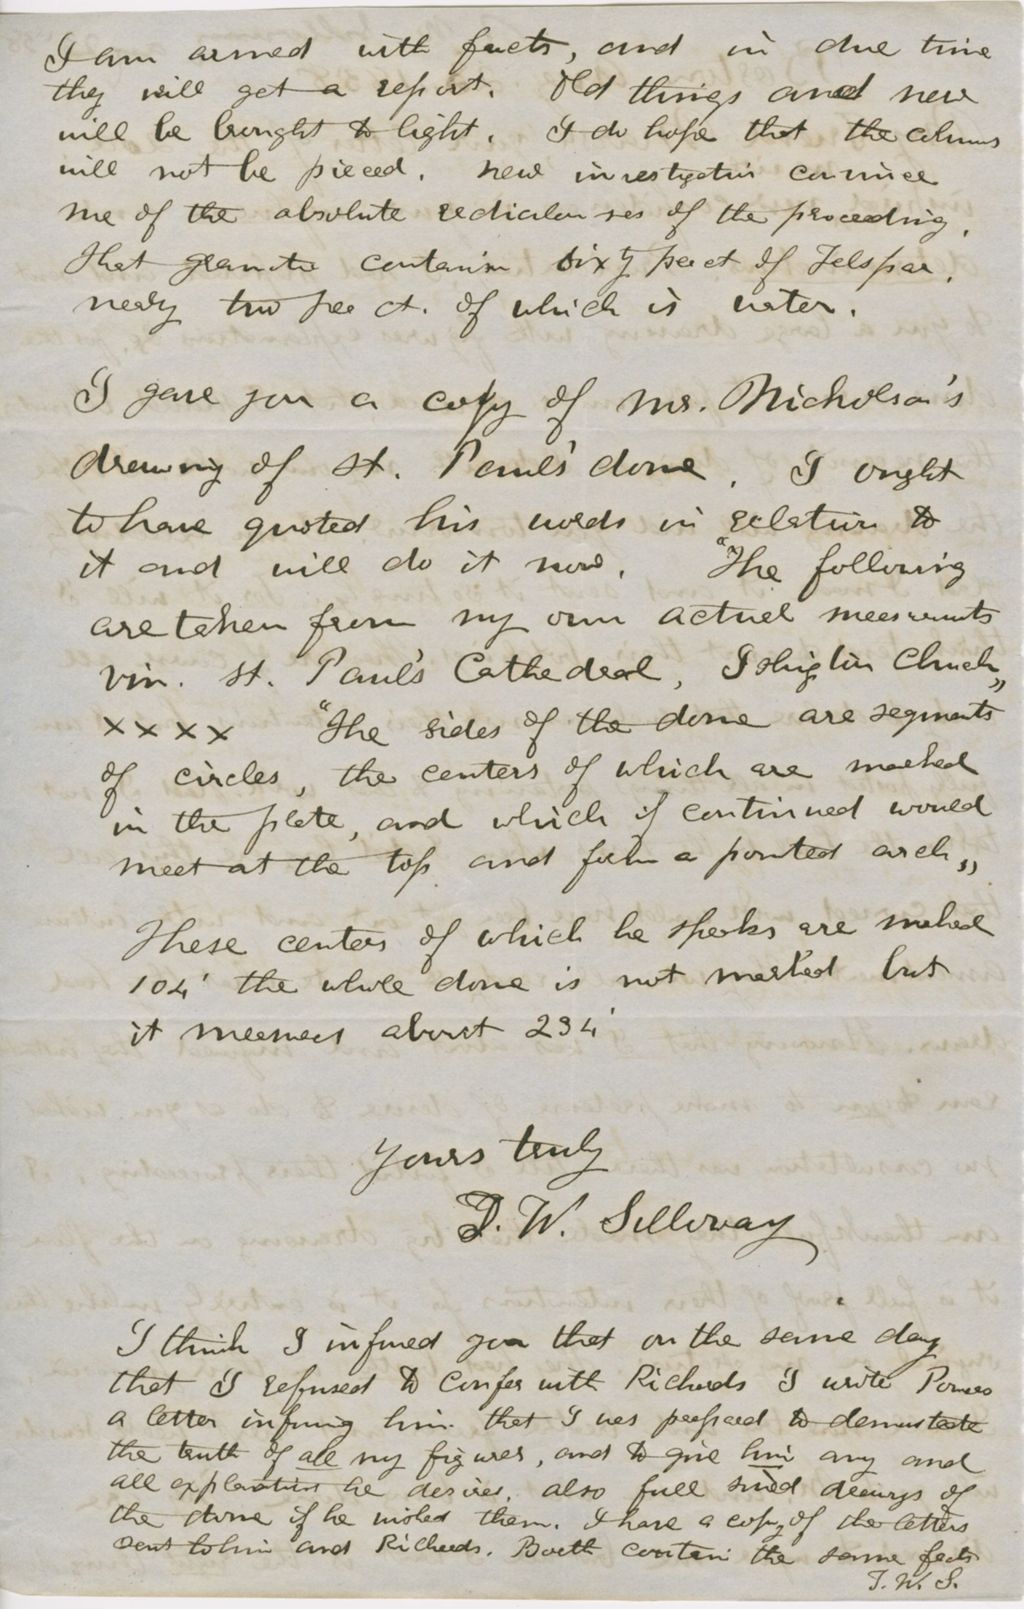 I am armed with facts, and in due time
they will get a report. Old things and new
will be brought to light. I do hope that the columns
will not be pieced. New investigatin convince
me of the absolute redicalouses of the proceeding.
That granite contains sixty per ct of Felspar.
nealy two per ct. of which is water.
I gave you a copy of Mr. Nicholson's
drawing of St. Paul's dome. I ought
to have quoted his words in relation to
it and will do it now. "The following
are taken from my own actuel measurments
viz. St. Paul's Cathedral, Islington Church„
×××× "The sides of the dome are segments
of circles, the centers of which are marked
in the plate, and which if continued would
meet at the top and form a pointed arch„
These centers of which he speaks are marked
104' the whole dome is not marked but
it measures about 234'
Yours truly
T. W. Silloway
I think I informed you that on the same day
that I refused to confer with Richards I wrote Powers
a letter informing him that I was prepared to demonstrate
the truth of all my figures, and to give him any and
all explanation he desires. also full sized drawings of
the dome if he wished them. I have a copy of the letters
sent to him and Richards. Both contain the same facts
T. W. S.